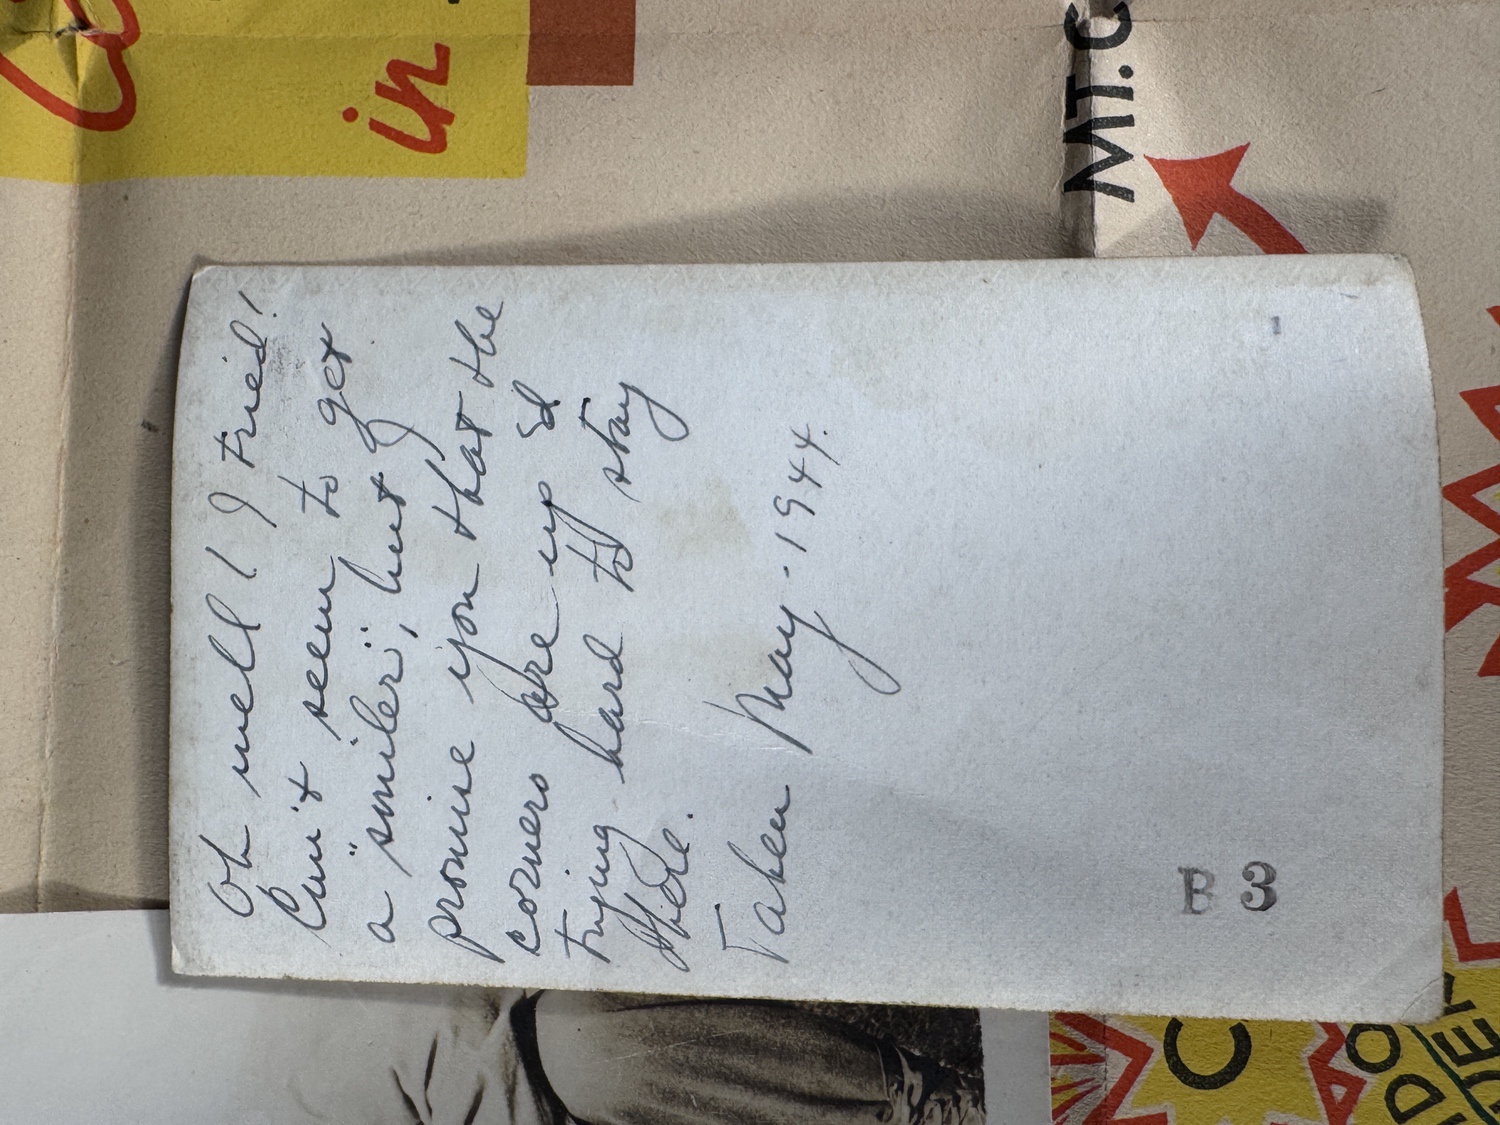 Oh well! I tried!
Can't seem to get
a "smiler"; but I
promise you that the
corners are up &
trying hard to stay
there.
Taken May - 1944.
B 3
in
MT. C